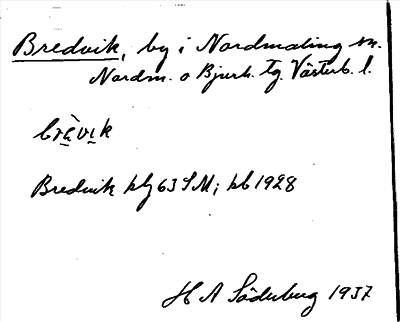 Bredvik, by i Nordmaling sn.
Nordm. o Bjurh. tg. Västerb. l.
brè̱vi̱k
Bredvik blg 63 SM; kb 1928
H A Söderberg 1937